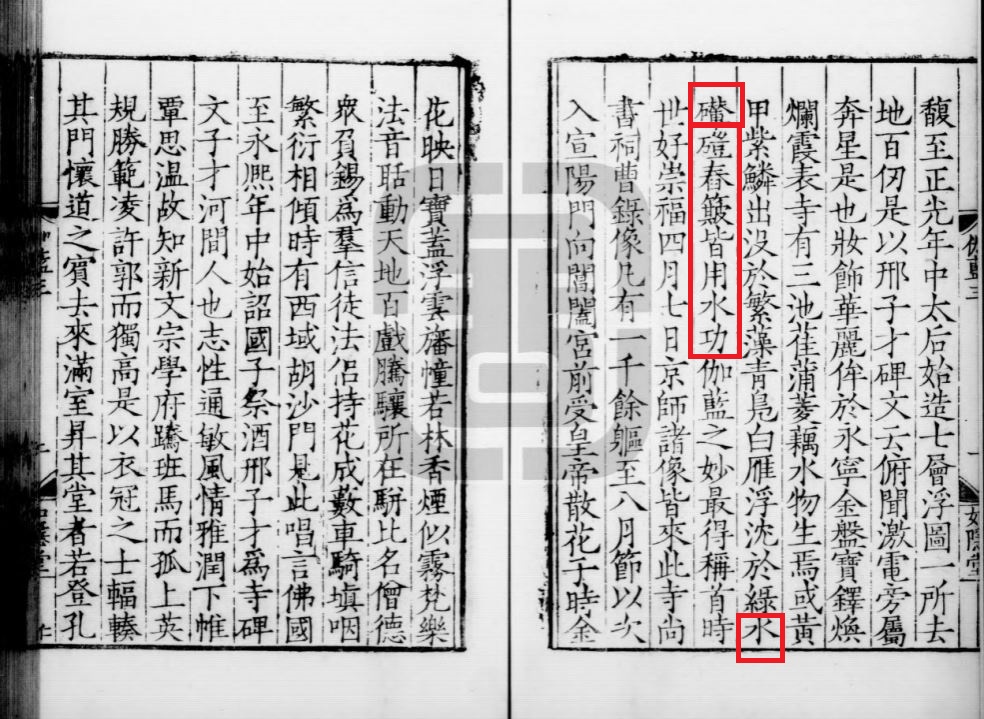 馥至正光年中太后始造七層浮圖一所去
地百仞是以邢子才碑文云俯聞激電旁屬
奔星是也妝飾華麗侔於永寧金盤寶鐸煥
爛霞表寺有三池萑蒲菱藕水物生焉或黃
甲紫鱗出沒於繁藻青鳧白雁浮沈於綠水
磑舂簸皆用水功伽藍之妙最得稱首時
世好崇福四月七日京師諸像皆來此寺尚
書祠曹錄像凡有一千餘軀至八月節以次
入宣陽門向閶闔宮前受皇帝散花于時金
花映日寶蓋浮雲旛幢若林香煙似霧梵樂
法音聒動天地百戲騰驤所在駢比名僧德
衆負錫爲羣信徒法侶持花成藪車騎填咽
繁衍相傾時有西域胡沙門見此唱言佛國
至永熙年中始詔國子祭酒邢子才爲寺碑
文子才河間人也志性通敏風情雅潤下帷
覃思溫故知新文宗學府蹻班馬而孤上英
規勝範凌許郭而獨高是以衣冠之士輻輳
其門懷道之賓去來滿室昇其堂者若登孔